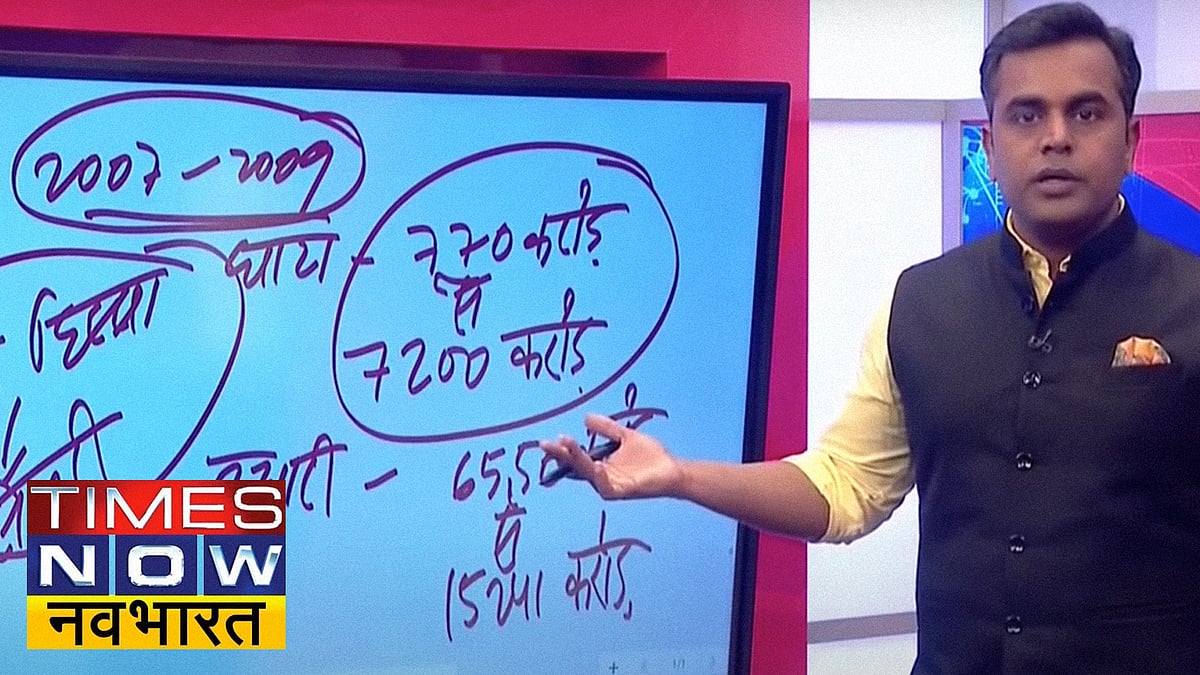 2007 - 2009
घाटा - 770 करोड़
से
7200 करोड़
हिस्सा
से
15241 करोड़
TIMES
NOW
नवभारत
1/1